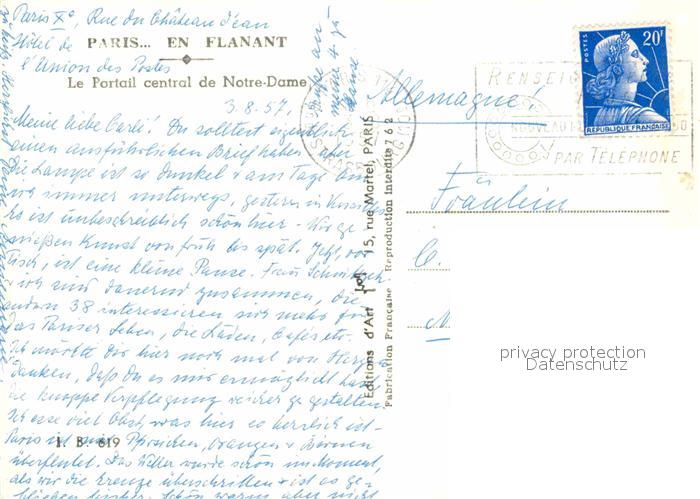 Paris Xe, Rue du Château d'eau
Hôtel de
l'Union des Postes
PARIS... EN FLANANT
Le Portail central de Notre-Dame
3.8.57.
Meine liebe Carli! Du solltest eigentlich
einen ausführlichen Brief haben, aber
die Lampe ist so dunkel & am Tage sind
wir immer unterwegs, gestern in
Es ist unbeschreiblich schön hier - Wir ge-
nießen Kunst von früh bis spät. Jetzt, vor
Tisch, ist eine kleine Pause. Frau
& wir sind dauernd zusammen, die
andern 38 interessieren sich mehr für
das Pariser Leben, die Läden, Cafés etc.
Ich möchte Dir hier noch mal von Herzen
danken, daß Du es mir ermöglicht hast
die knappe Verpflegung reicher zu gestalten.
Ich esse viel Obst, was hier so herrlich ist -
Paris ist mit Pfirsichen, Orangen & Birnen
überflutet. Das Wetter wurde schön im Moment,
als wir die Grenze überschritten & ist es ge-
blieben bisher. Schön warm, aber nicht
I. B. 619
Editions d'Art 15, rue Martel, PARIS
Fabrication Française - Reproduction interdite 762
Allemagne!
POSTES
20F
REPUBLIQUE FRANÇAISE
NOUVEAU
PAR TELEPHONE
Fräulein
C.
M
privacy protection
Datenschutz